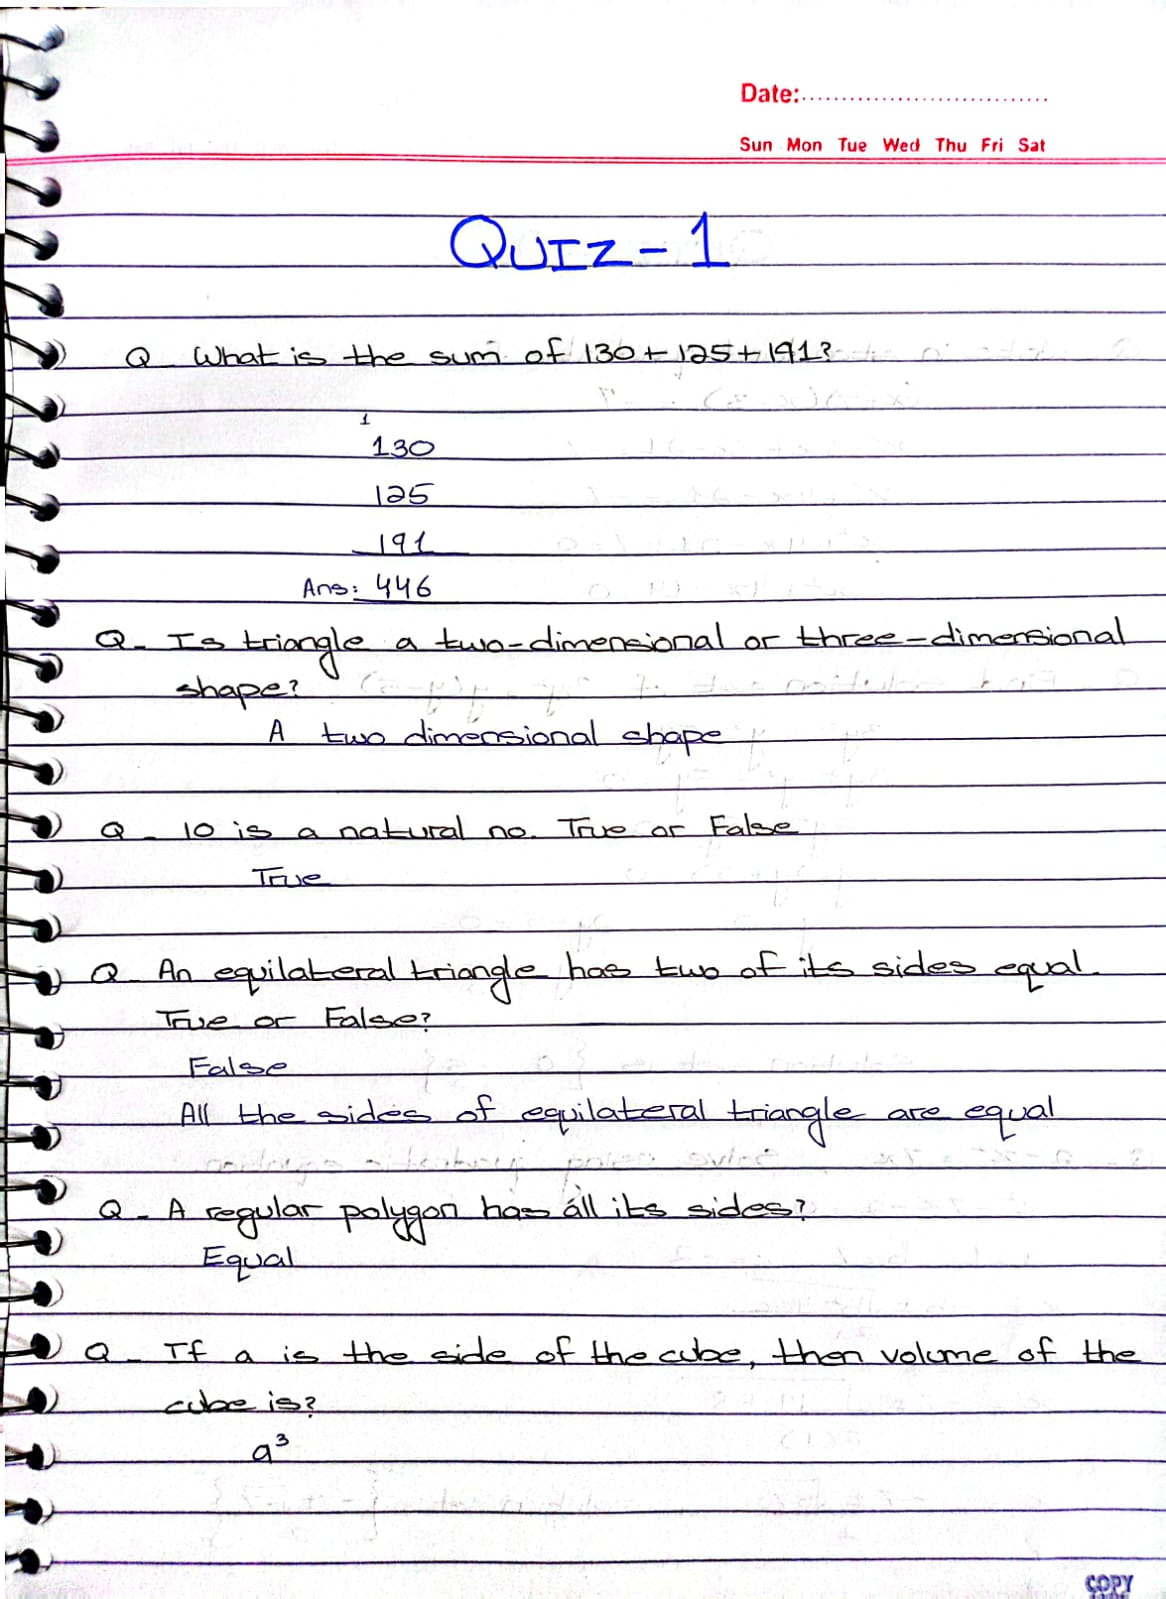 Date:
Sun Mon Tue Wed Thu Fri Sat
QUIZ-1
Q What is the sum of 130+125+191?
1
130
125
191
Ans: 446
Q- Is triangle a two-dimensional or three-dimensional
shape?
A two dimensional shape
Q- 10 is a natural no. True or False
True
Q An equilateral triangle has two of its sides equal.
True or False?
False
All the sides of equilateral triangle are equal
Q- A regular polygon has all its sides?
Equal
Q- If a is the side of the cube, then volume of the
cube is?
a³
COPY